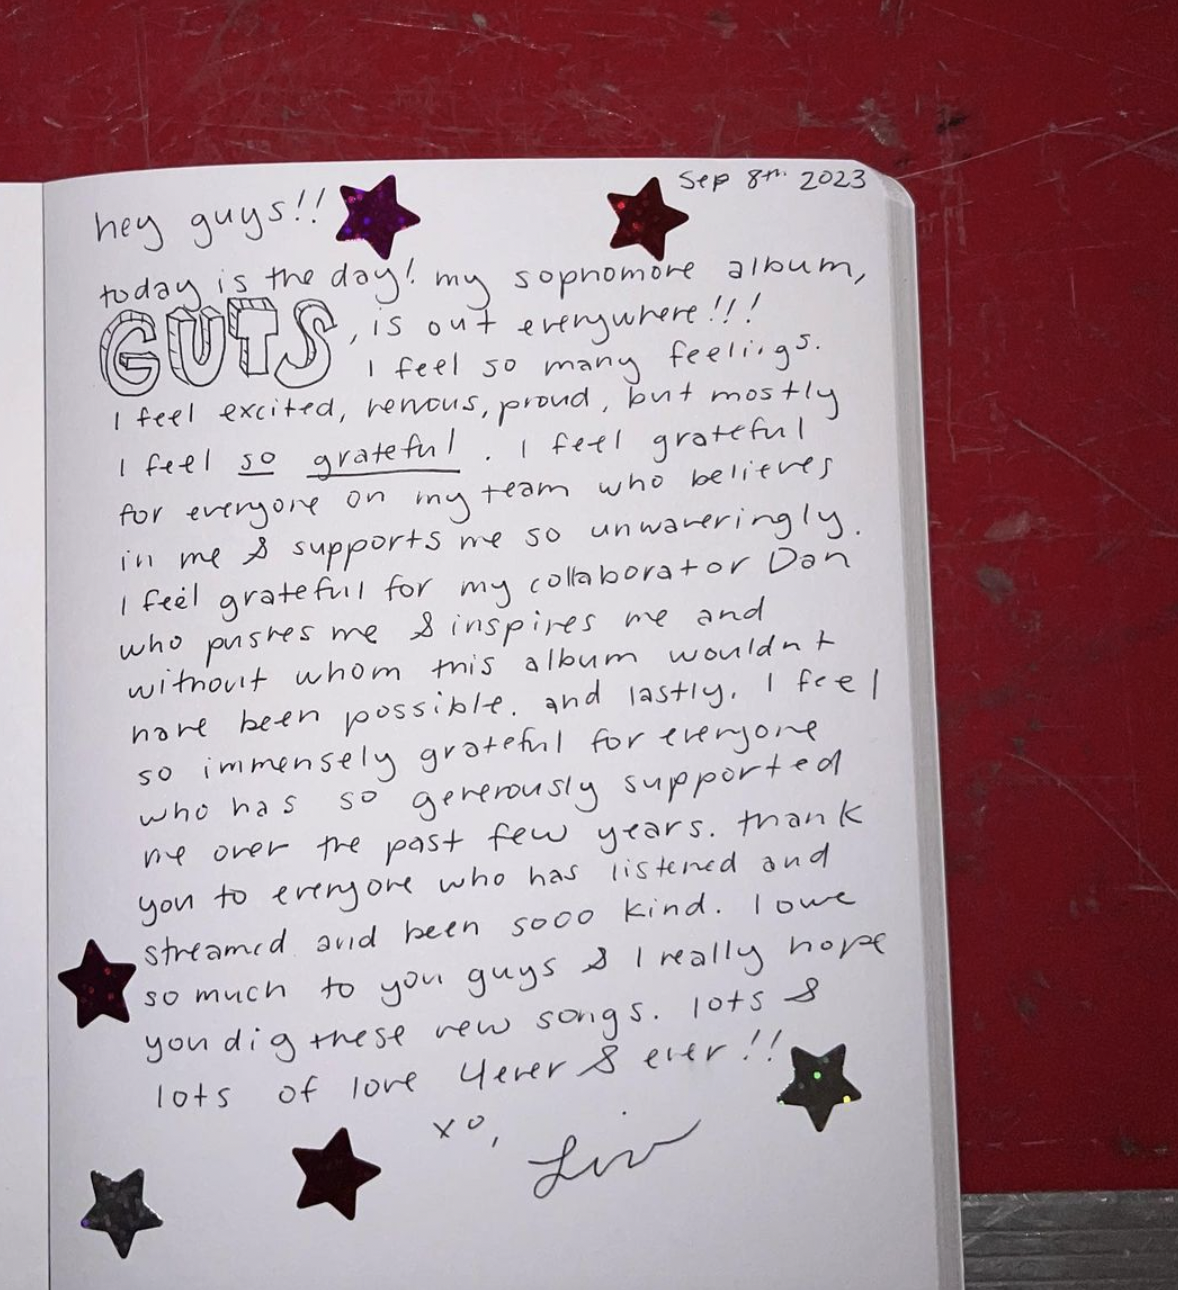 Sep 8th 2023
hey guys!!
today is the day! my sophomore album,
GUTS, is out everywhere!!!
I feel so many feelings.
I feel excited, nervous, proud, but mostly
I feel so grateful. I feel grateful
for everyone on my team who believes
in me & supports me so unwaveringly.
I feel grateful for my collaborator Dan
who pushes me & inspires me and
without whom this album wouldnt
have been possible. and lastly, I feel
so immensely grateful for everyone
who has so generously supported
me over the past few years. thank
you to everyone who has listened and
streamed and been sooo kind. I owe
so much to you guys & I really hope
you dig these new songs. lots &
lots of love 4ever & ever!!
xo,
Liv